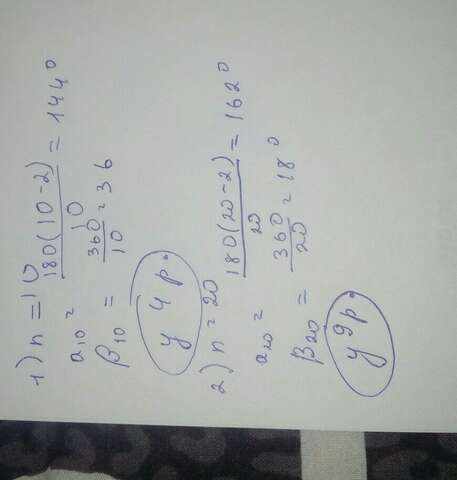 1) n = 10
a₁₀ = 180(10-2)/10 = 144⁰
β₁₀ = 360/10 = 36
у 4 р.
2) n = 20
a₂₀ = 180(20-2)/20 = 162⁰
β₂₀ = 360/20 = 18⁰
у 9 р.